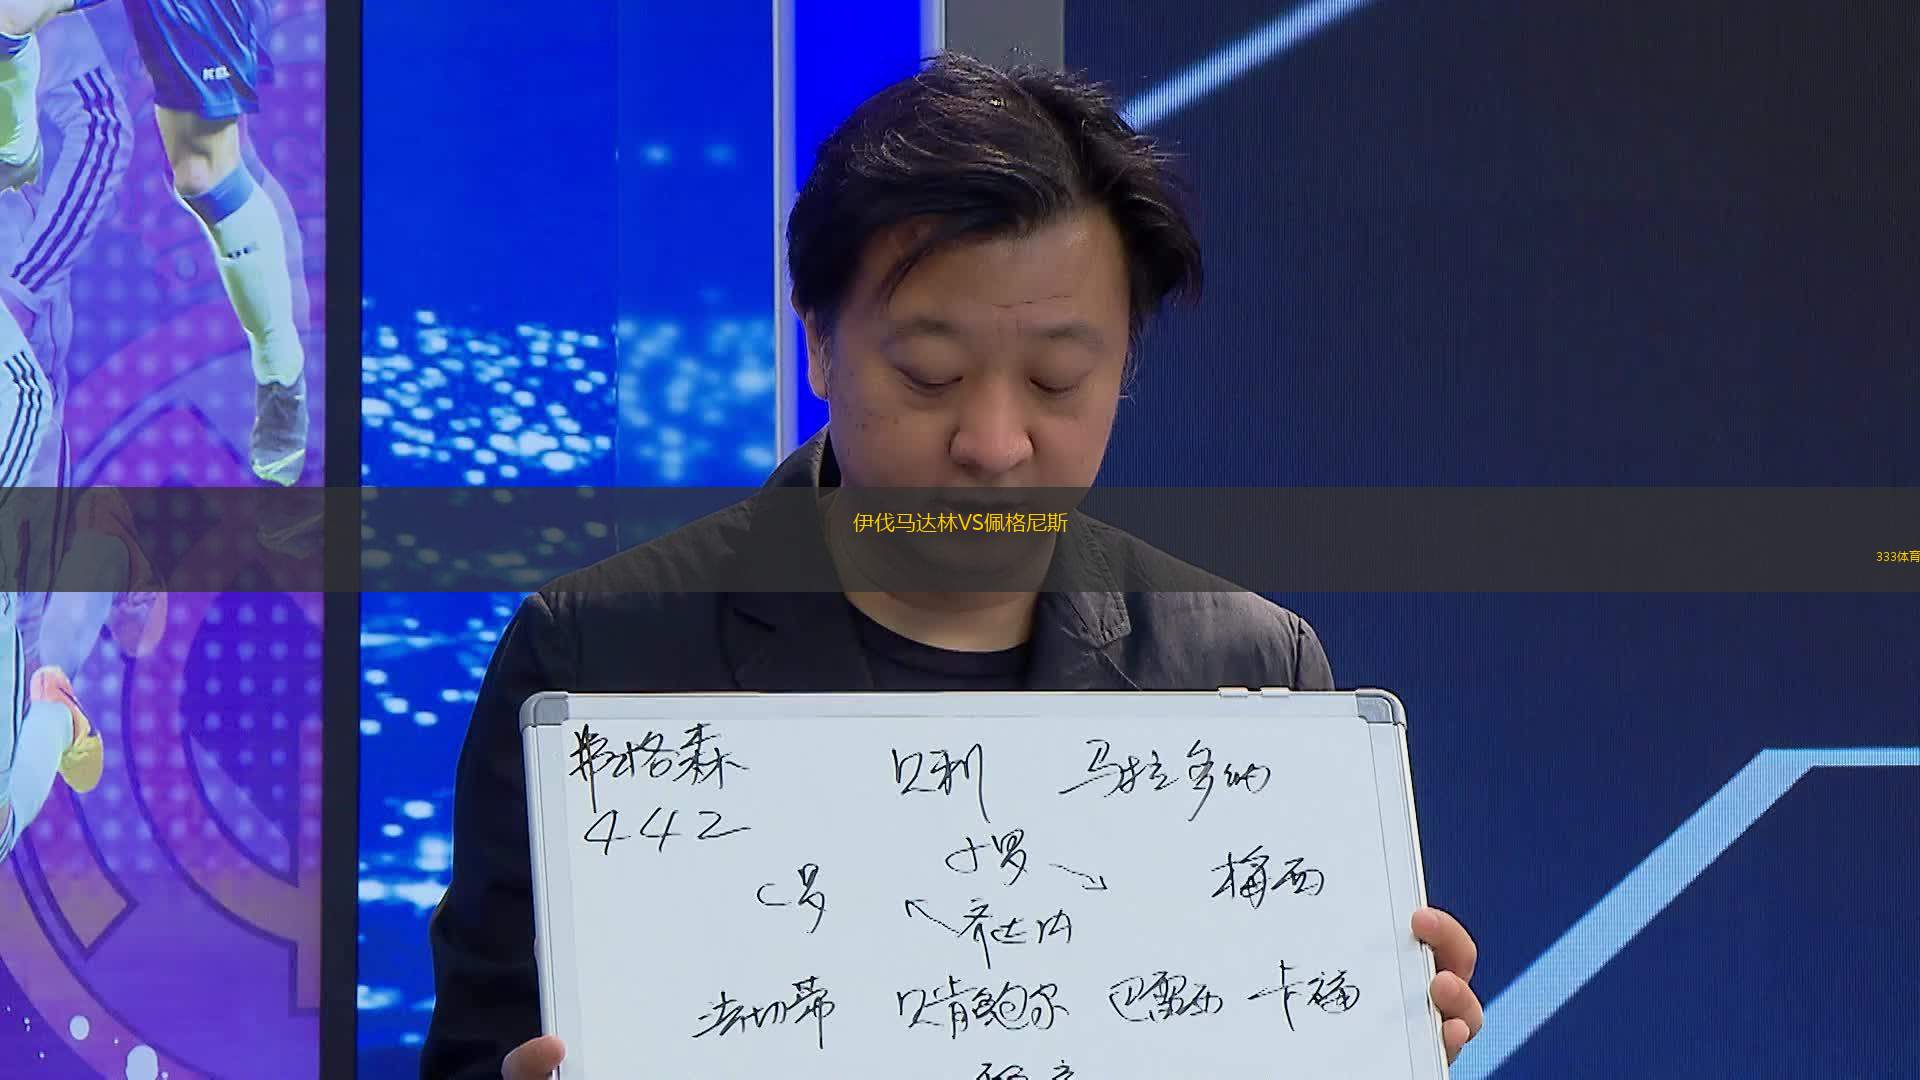 KEL
伊伐马达林VS佩格尼斯
333体育
弗格森 贝利 马拉多纳
442
小罗
C罗 梅西
齐达内
法切蒂 贝肯鲍尔 巴雷西 卡福